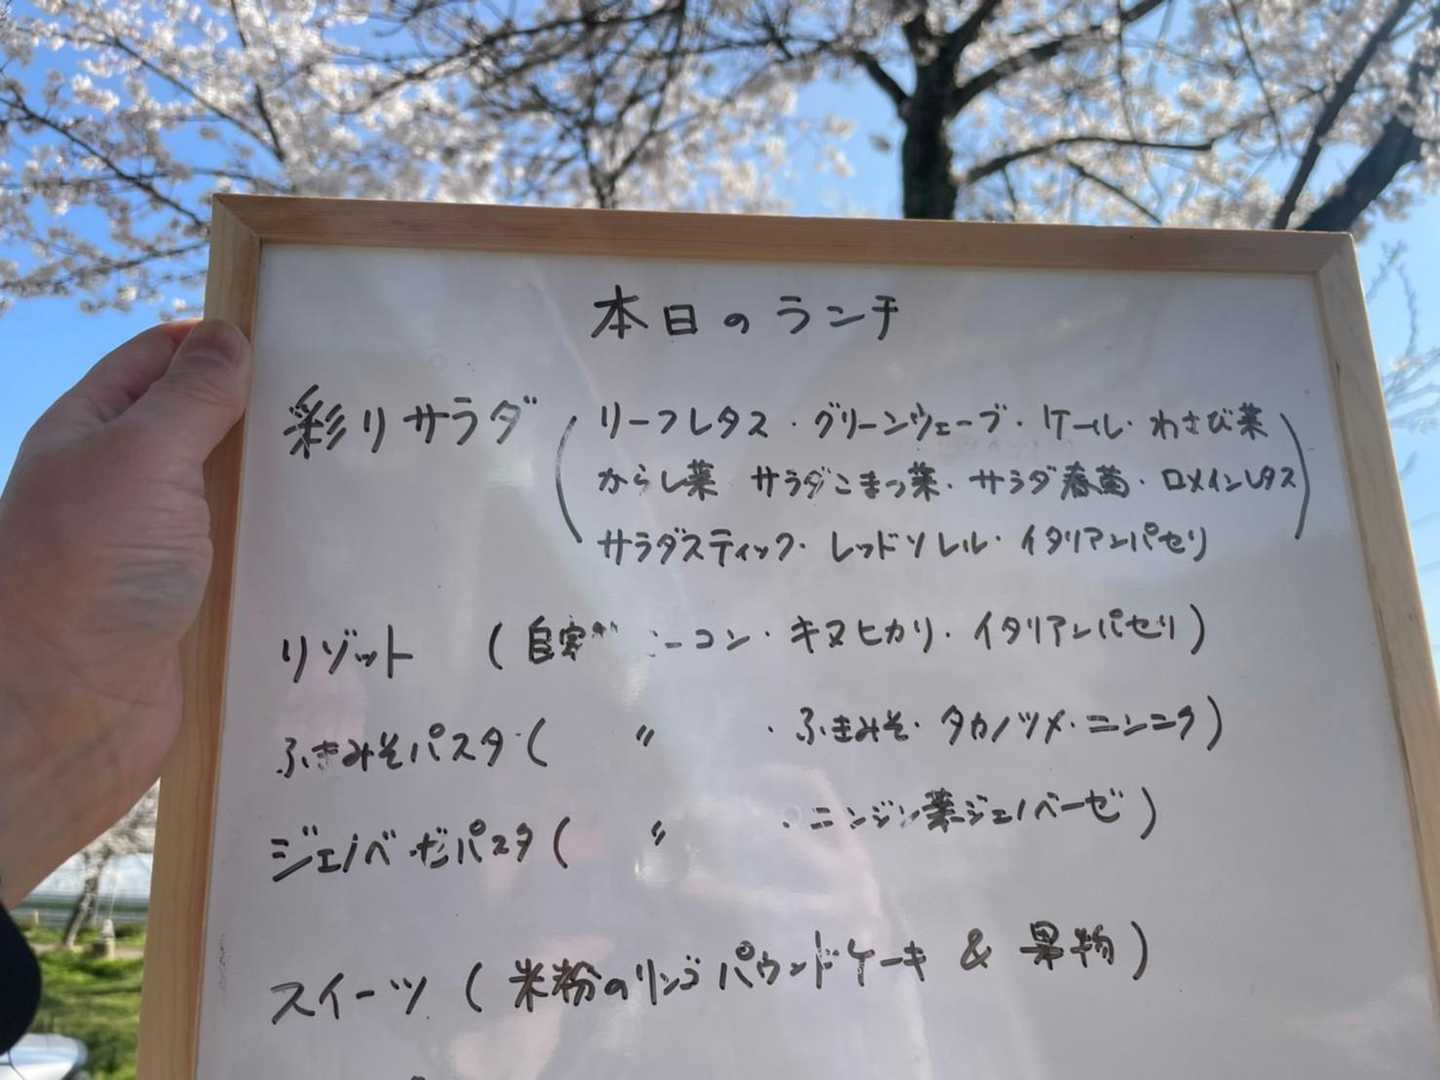 本日のランチ
彩りサラダ（リーフレタス・グリーンウェーブ・ケール・わさび菜
からし菜 サラダこまつ菜・サラダ春菊・ロメインレタス
サラダスティック・レッドソレル・イタリアンパセリ）
リゾット （自家 ーコン・キヌヒカリ・イタリアンパセリ）
ふきみそパスタ（ 〃 ・ふきみそ・タカノツメ・ニンニク）
ジェノベーゼパスタ（ 〃 ・ニンジン葉ジェノベーゼ）
スイーツ（米粉のリンゴパウンドケーキ & 果物）